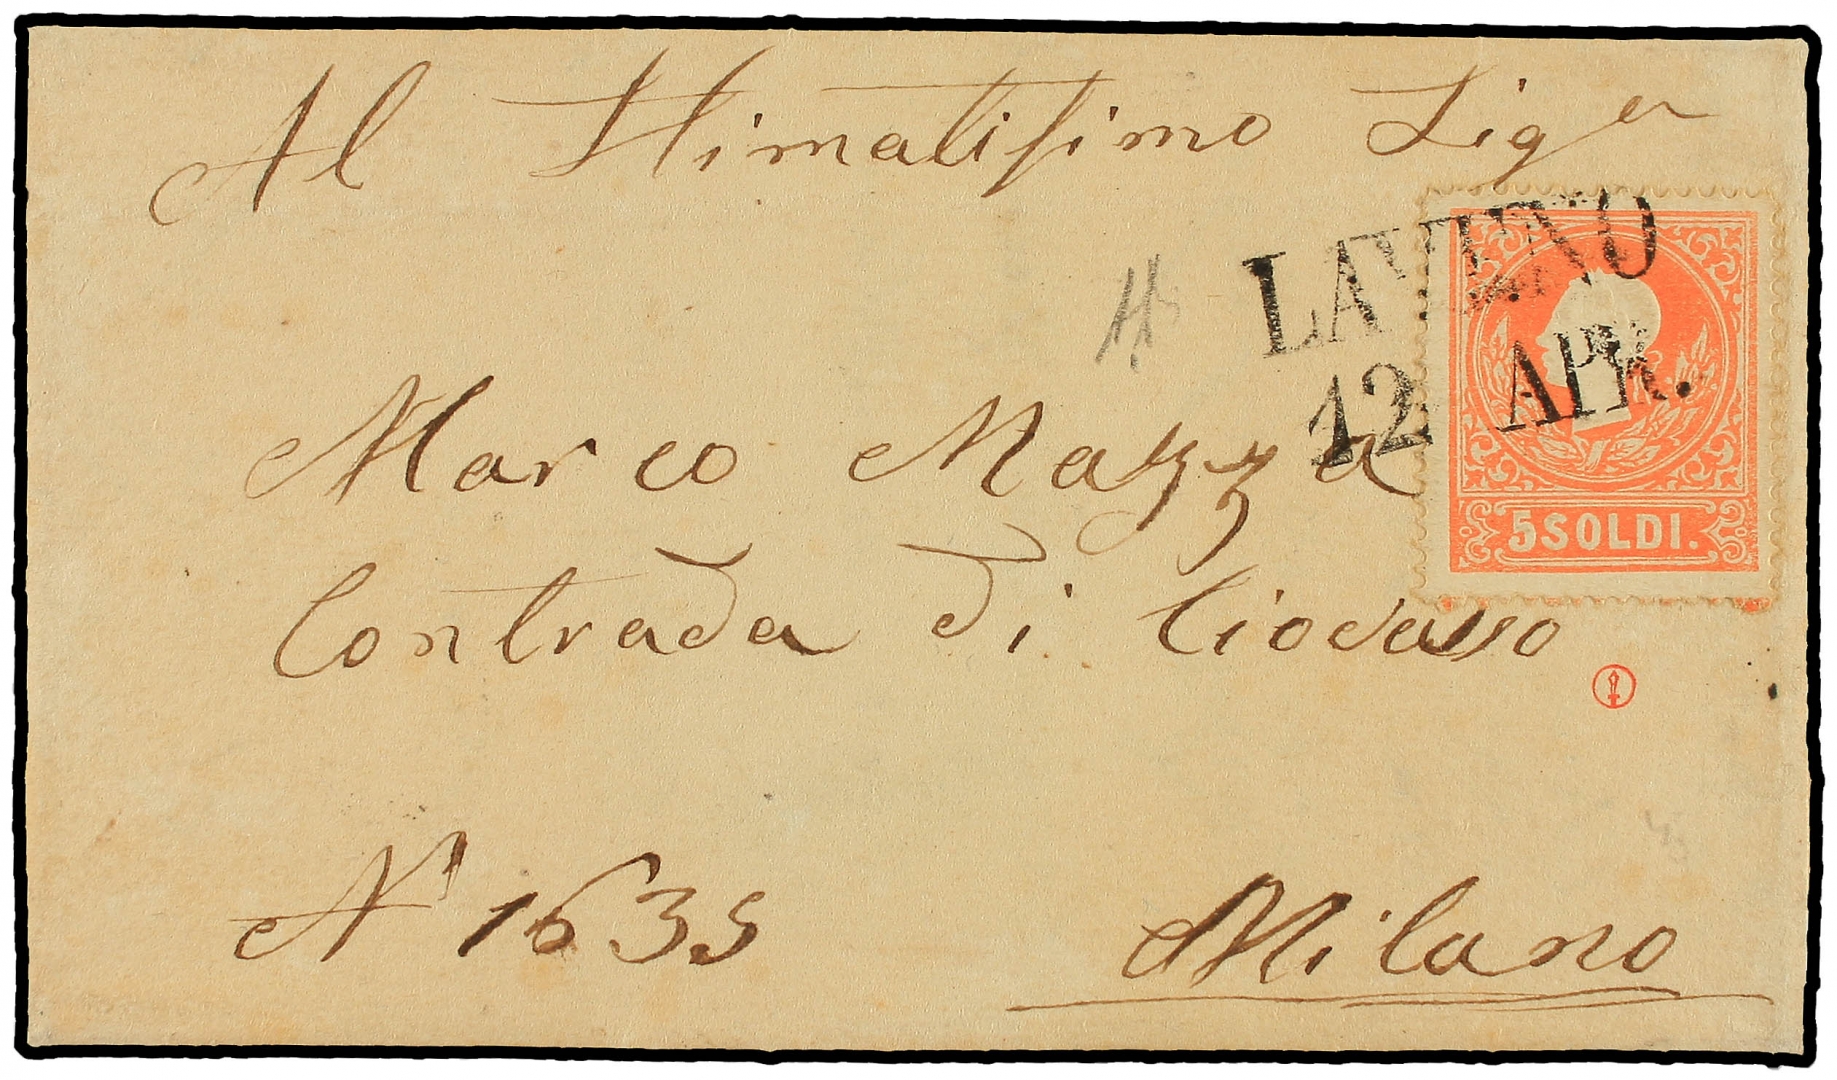 Al Stimatisimo Sigr
LAVENO
12 APR.
5 SOLDI.
Marco Mazza
Contrada di Ciovasso
N° 1635
Milano